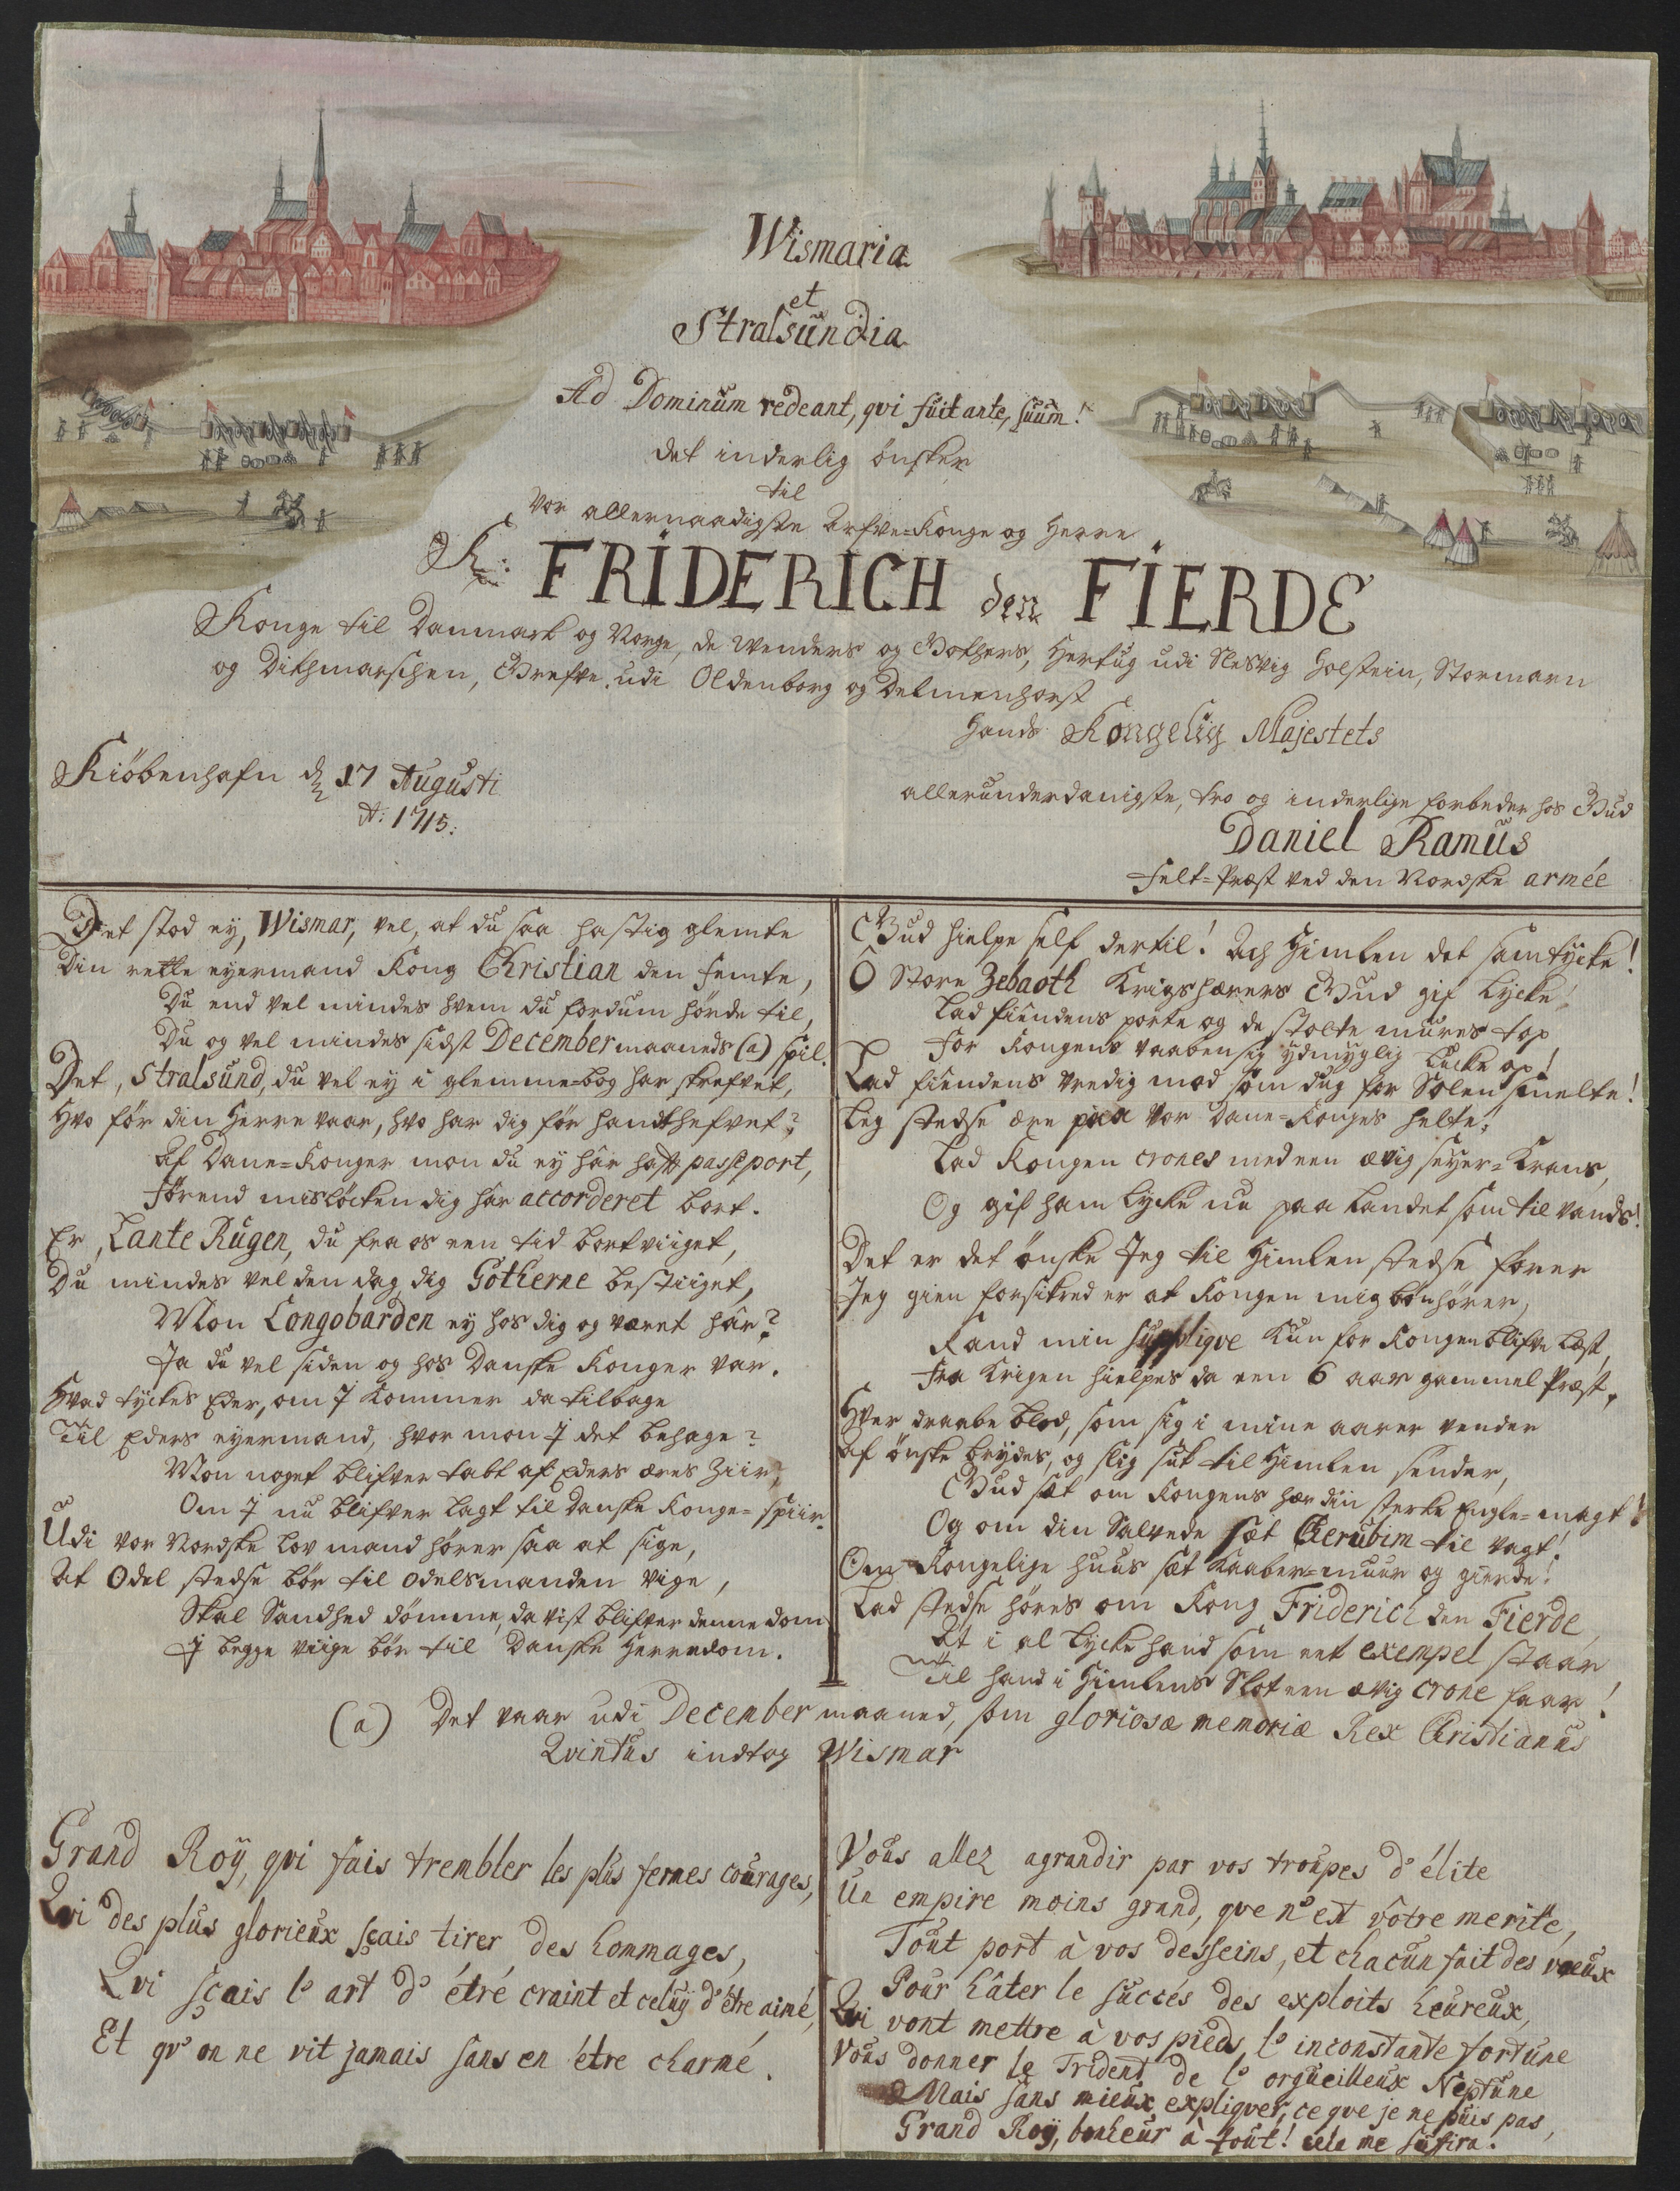 Wismaria
et
Stralsundia
Ad Dominum redeant, qvi fuit ante, suum!
det inderlig önsker
til
Vor allernaadigste Arfve-Konge og Herre
K: FRIDERICH den FIERDE
Konge til Danmark og Norge, de Wenders og Gothers, Hertug udi Slesvig Holstein, Stormarn
og Dithmarschen, Grefve udi Oldenborg og Delmenhorst
Hands Kongelig Majestets
Kiöbenhafn d 17 Augusti
A: 1715:
allerunderdanigste, tro og inderlige forbeder hos Gud
Daniel Ramus
Felt-Præst ved den Nordske armée
Det stod ey, Wismar, vel, at du saa hastig glemte
Din rette eyermand Kong Christian den femte,
Du end vel mindes hvem du fordum hörde til,
Du og vel mindes sidst December maaneds (a) spil.
Det, Stralsund, du vel ey i glemme-bog har skrefvet,
Hvo för din Herre vaar, hvo har dig för handthefvet?
Af Dane-Konger mon du ey här hafft passeport,
Förend mislöcken dig här accorderet bort.
Er, Lante Rügen, du fra os een tid bortviiget,
Du mindes vel den dag dig Gotherne bestiiget,
Mon Longobarden ey hos dig og været här?
Ja du vel siden og hos Danske Konger var.
Hvad tyckes Eder, om I kommer da tilbage
Til Eders eyermand, hvor mon I det behage?
Mon noget blifver tabt af Eders æres Ziir,
Om I nu blifver lagt til Danske Konge-spiir.
Udi vor Nordske Lov mand hörer saa at sige,
At Odel stedse bör til Odelsmanden vige,
Skal Sandhed dömme, da vist blifver denne dom
I begge viige bör til Danske Herredom.
Gud hielpe self dertil! Ach Himlen det samtycke!
Ô Store Zebaoth Krigshærers Gud gif Lycke!
Lad fiendens porte og de stolte mures top
For Kongens vaaben sig ydmyglig lucke op!
Lad fiendens vredig mod som dug for Solen smelte!
Leg stedse ære paa vor Dane-Konges helte!
Lad Kongen crones med een ævig seyer-Krans,
Og gif ham Lycke nu paa Landet som til vands!
Det er det önske Jeg til Himlen stedse förer
Jeg gien forsikred er at Kongen mig bönhörer,
Kand min suppliqve kun for Kongen blifve læst,
Fra Krigen hielpes da een 6 aar gammel Præst.
Hver draabe blod, som sig i mine aarer vender
Af önske brydes, og slig suk til Himlen sender,
Gud sæt om Kongens hær din sterke Engle-magt!
Og om din Salvede sæt Cherubim til vagt!
Om Kongelige huus sæt Kaaber-muur og gierde!
Lad stedse höres om Kong Friderich den Fierde,
At i al Lycke hand som eet exempel staar
Til hand i Himlens Slot een ævig crone faar!
(a) Det vaar udi December maaned, som gloriosæ memoriæ Rex Christianus
Qvintus indtog Wismar
Grand Roy, qvi fais trembler les plus fermes courages,
Qvi des plus glorieux sçais tirer des hommages,
Qvi sçais l'art d'étré craint et celuy d'être aimé,
Et qv'on ne vit jamais sans en être charmé.
Vous allez agrandir par vos troupes d'élite
Un empire moins grand, qve n'est vôtre meritte,
Tout port à vos desseins, et chacun fait des vœux
Pour hâter le succés des exploits heureux,
Qvi vont mettre à vos pieds, l'inconstante fortune
Vous donner le Trident de l'orgueilleux Neptune
Mais sans mieux expliqver, ce qve je ne puis pas,
Grand Roy, bonheur à tout! cela me sufira.